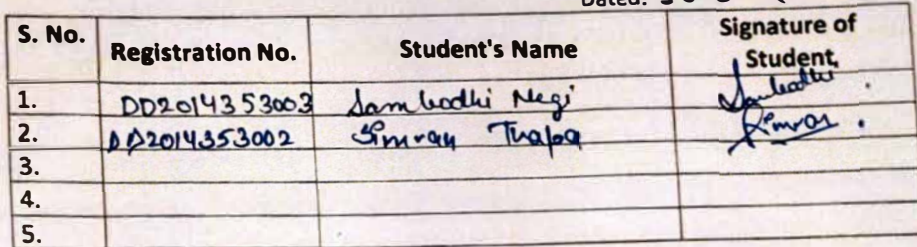 Dated:
S. No. Registration No. Student's Name Signature of Student
1. DD2014353003 Sambodhi Negi Sambodhi
2. DD2014353002 Simran Thapa Simran
3.
4.
5.